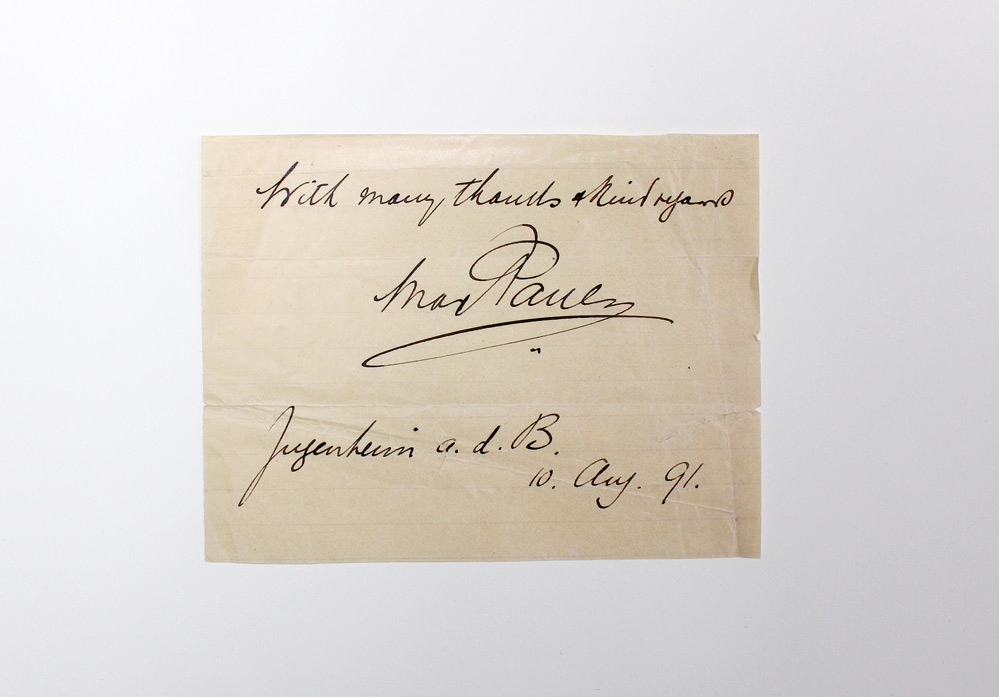 With many thanks & kind regards
Max Pauer
Jugenheim a. d. B.
10. Aug. 91.